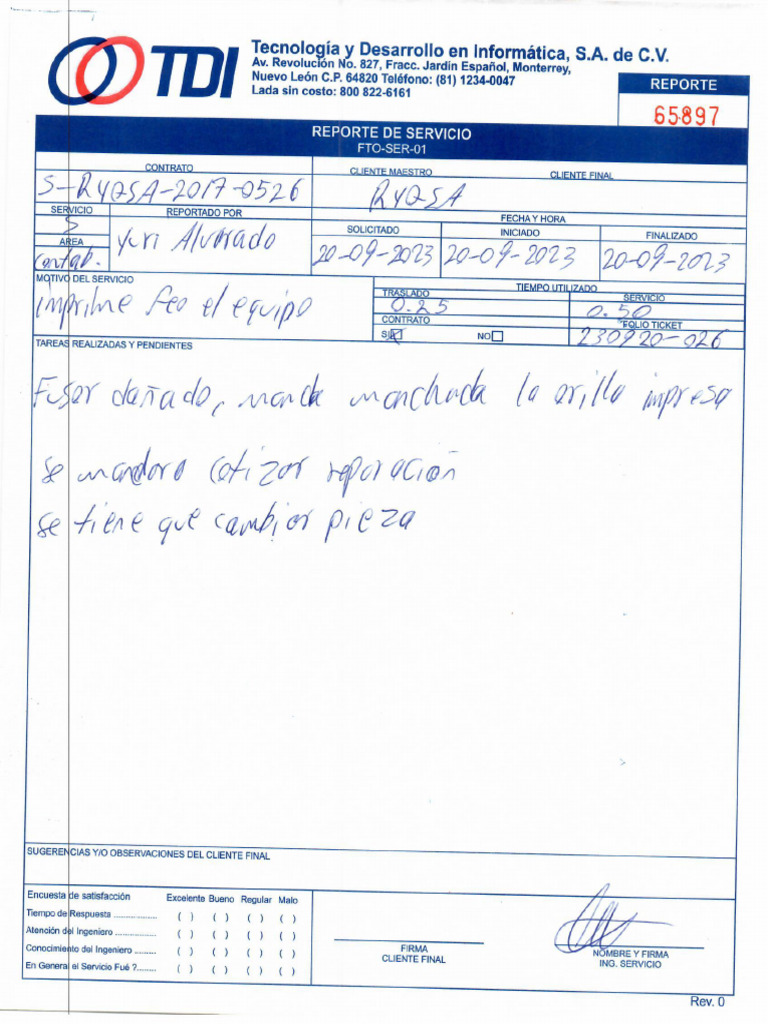 TDI
Tecnología y Desarrollo en Informática, S.A. de C.V.
Av. Revolución No. 827, Fracc. Jardín Español, Monterrey,
Nuevo León C.P. 64820 Teléfono: (81) 1234-0047
Lada sin costo: 800 822-6161
REPORTE
65897
REPORTE DE SERVICIO
FTO-SER-01
CONTRATO
S-RYQSA-2017-0526
CLIENTE MAESTRO
CLIENTE FINAL
RYQSA
SERVICIO
S
REPORTADO POR
Yuri Alvarado
AREA
Contab.
FECHA Y HORA
SOLICITADO
INICIADO
FINALIZADO
20-09-2023
20-09-2023
20-09-2023
MOTIVO DEL SERVICIO
imprime feo el equipo
TIEMPO UTILIZADO
TRASLADO
SERVICIO
0.25
0.50
CONTRATO
FOLIO TICKET
SI
NO
230920-026
TAREAS REALIZADAS Y PENDIENTES
Fusor dañado, manda manchada la orilla impresa
se mandara cotizar reparación
se tiene que cambiar pieza
SUGERENCIAS Y/O OBSERVACIONES DEL CLIENTE FINAL
Encuesta de satisfacción
Excelente Bueno Regular Malo
Tiempo de Respuesta ................ ( ) ( ) ( ) ( )
Atención del Ingeniero ............... ( ) ( ) ( ) ( )
Conocimiento del Ingeniero ......... ( ) ( ) ( ) ( )
En General el Servicio Fué ?........ ( ) ( ) ( ) ( )
FIRMA
CLIENTE FINAL
NOMBRE Y FIRMA
ING. SERVICIO
Rev. 0